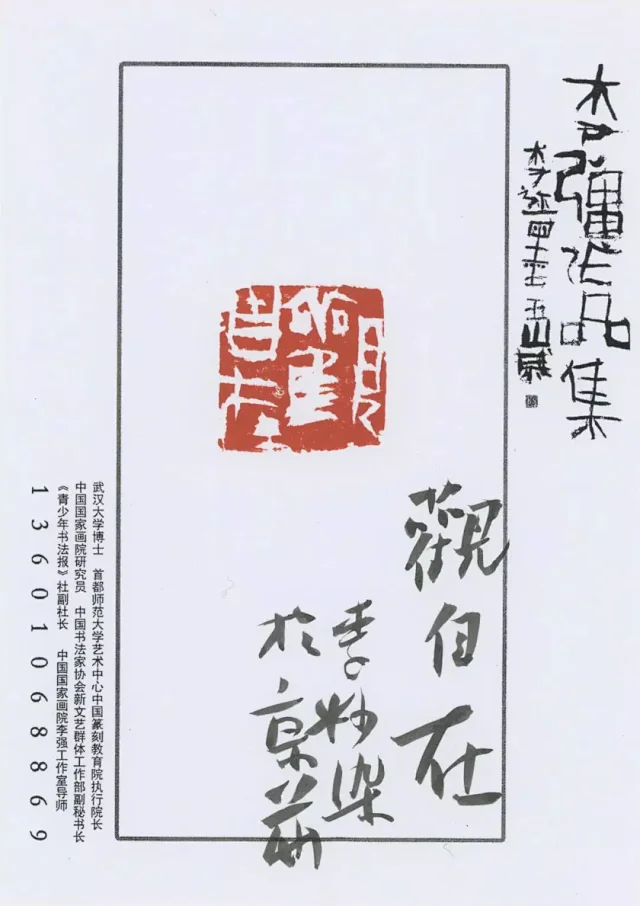 李彊作品集
觀自在
觀自在
李
染
於京華
武汉大学博士 首都师范大学艺术中心中国篆刻教育院执行院长
中国国家画院研究员 中国书法家协会新文艺群体工作部副秘书长
《青少年书法报》社副社长 中国国家画院李强工作室导师
13601068869